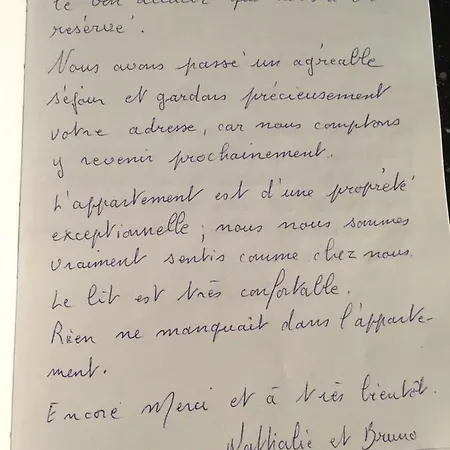 le bon accueil que nous a été
réservé.
Nous avons passé un agréable
séjour et gardons précieusement
votre adresse, car nous comptons
y revenir prochainement.
L'appartement est d'une propreté
exceptionnelle ; nous nous sommes
vraiment sentis comme chez nous.
Le lit est très confortable.
Rien ne manquait dans l'apparte-
ment.
Encore Merci et à très bientôt.
Nathalie et Bruno